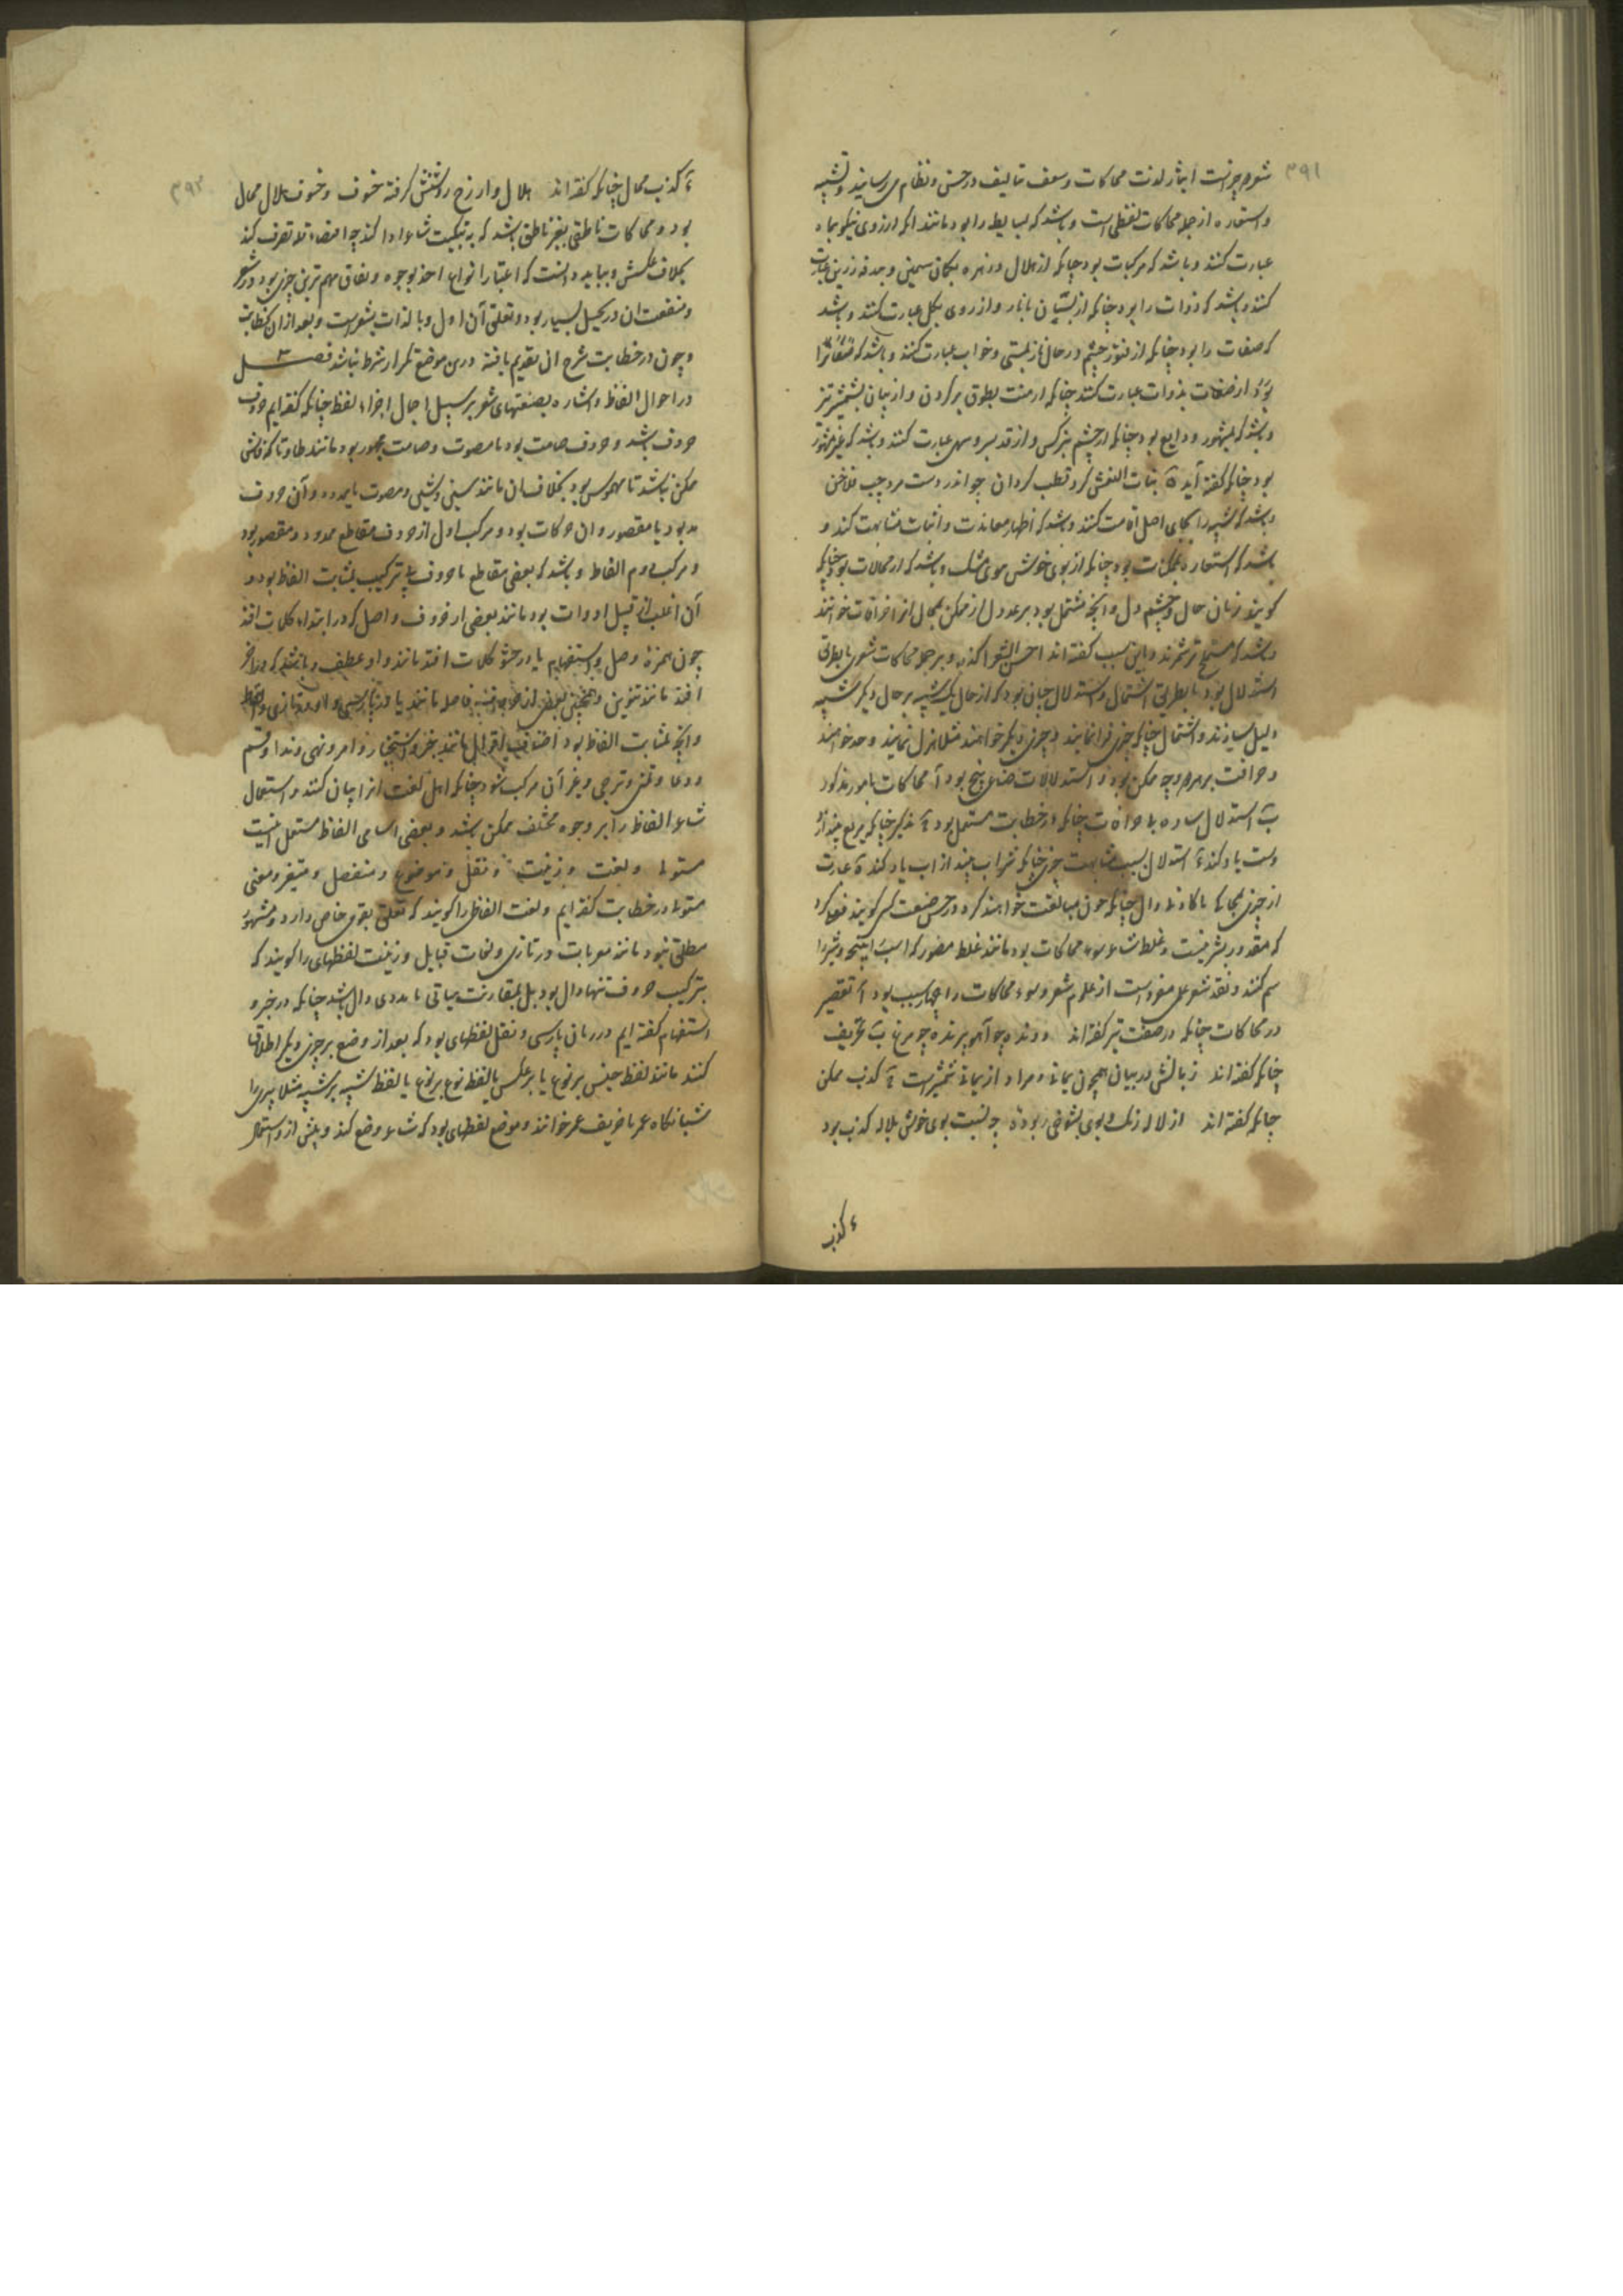 ۳۹۱
شعر سه چیزست ایثار لذت محاکات وسعف تالیف در حسن ونظام می‌رسانید وتشبیه
واستعاره از جمله محاکات لفظی است وباشد که بسایط را بود مانند انکه از روی نیکو بماه
عبارت کنند وباشد که مرکبات بود چنانکه از هلال وزهره بکمان سیمین وبندقه زرین عبارت
کنند وباشد که ذوات را بود چنانکه از پستان بانار واز روی بکل عبارت کنند وباشد
که صفات را بود چنانکه از فتور چشم در حال ناز بمستی وخواب عبارت کنند وباشد که صفات را
بود از صفات بذوات عبارت کنند چنانکه از منت بطوق بر کردن واز بیان بشمشیر تیز
وباشد که بمشهور وذایع بود چنانکه از چشم بنرکس واز قد بسرو سهی عبارت کنند وباشد که غیر مشهور
بود چنانکه کفته‌آید بنات النعش کرد قطب کردان چو اندر دست مرد چپ فلاخن
وباشد که شبیه را بجای اصل اقامت کنند وباشد که اظهار معاندت واثبات مشابهت کنند و
باشد که استعاره بممکنات بود چنانکه از بوی خوش موی بمشک وباشد که از محالات بود چنانکه
کویند زبان حال وچشم دل وانچه مشتمل بود بر عدول از ممکن بمحال انرا خرافات خوانند
وباشد که مستملح تر شمرند وباین سبب کفته‌اند احسن الشعر اکذبه وبر جمله محاکات شعری یا بطریق
استدلال بود یا بطریق اشتمال واستدلال چنان بود که از حال یک شبیه بر حال دیکر شبیه
دلیل سازند واشتمال چنانکه چیزی فرا نمایند وچیزی دیکر خواهند مثلا هزل نمایند وجد خواهند
وخرافات بر هر دو وجه ممکن بود واستدلالات صناعی پنج بود آ محاکات بامور مذکور
ب استدلال ساده بی خرافات چنانکه در خطابت مستعمل بود ج تذکیر چنانکه بربع بیند از
دست یاد کند د استدلال بسبب مشابهت چیزی چنانکه شراب بیند از آب یاد کند ه عبارت
از چیزی بمحال یا کاذب دال چنانکه چون مبالغت خواهند کرد در حسن صنعت کسی کویند فعلی کرد
که مقدور بشر نیست وغلط شاعر سوء محاکات بود مانند غلط مصور که اسب را پنجه وشیر را
سم کنند ونقد شعر علمی مفردست از علوم شعر وسوء محاکات را چهار سبب بود آ تقصیر
در محاکات چنانکه در صفت تیر کفته‌اند دونده چو آهو پرنده چو مرغ ب تحریف
چنانکه کفته‌اند زبانش در بیان همچون یمانی ومراد از یمانی شمشیرست ج کذب ممکن
چنانکه کفته‌اند از لاله رنک وبوی بشوخی ربوده چه نسبت بوی خوش بلاله کذب بود
د کذب
۳۹۲
د کذب محال چنانکه کفته‌اند هلال وار زخ روشنش کرفته خسوف وخسوف هلال محال
بود ومحاکات ناطقی بغیر ناطق باشد که به تبکیت شاعر ادا کند چه اقتضاء قلت تصرف کند
بخلاف عکسش وبباید دانست که اعتبار انواع اخذ بوجوه ونفاق مهم ترین چیزی بود در شعر
ومنفعت ان در تخیل بسیار بود وتعلق آن اول وبالذات بشعر است وبعد از ان بخطابت
وچون در خطابت شرح ان تقدیم یافته درین موضع تکرار شرط نباشد فصـــــل ۳
در احوال الفاظ واشاره بصنعتهای شعر بر سبیل اجمال اجزاء لفظ چنانکه کفته‌ایم حروف
حروف باشد وحروف صامت بود یا مصوت وصامت مجهور بود مانند طا وتا که کشش
ممکن نباشد تا مهموس بود بخلاف ان مانند سین وشین ومصوت یا ممدود وآن حروف
مد بود یا مقصور وان حرکات بود ومرکب اول از حروف مقاطع ممدود ومقصور بود
ومرکب دوم الفاظ وباشد که بعضی مقاطع یا حروف بی ترکیب بمثابت الفاظ بود و
آن اغلب از قبیل ادوات بود مانند بعضی از حروف واصل که در ابتداء کلمات افتد
چون همزهٔ وصل واستفهام یا در حشو کلمات افتد مانند واو عطف وباشد که در آخر
افتد مانند تنوین
وانچه بمثابت الفاظ بود اصناف اقوال مانند خبر واستخبار وامر ونهی وندا وقسم
ودعا وتمنی وترجی وغیر آن مرکب شود چنانکه اهل لغت انرا بیان کنند واستعمال
شاعر الفاظ را بر وجوه مختلف ممکن باشد وبعضی اسامی الفاظ مستعمل اینست
مستولی ولغت وزینت ونقل وموضوع ومنفصل ومتغیر ومعنی
مستولی در خطابت کفته‌ایم ولغت الفاظی را کویند که تعلق بقومی خاص دارد ومشهور
مطلق نبود مانند معربات در تازی ولغات قبایل وزینت لفظهای را کویند که
بترکیب حروف تنها دال نبود بل بمقارنت هیاتی یا مددی دال باشد چنانکه در خبر و
استفهام کفته‌ایم در زبان پارسی ونقل لفظهای بود که بعد از وضع بر چیزی دیکر اطلاق
کنند مانند لفظ جنس بر نوع یا بر عکس یا لفظ نوع بر نوع یا لفظ شبیه بر شبیه مثلا پیری را
شبانکاه عمر یا خریف عمر خوانند وموضوع لفظهای بود که شاعر وضع کند وپیش از و استعمال